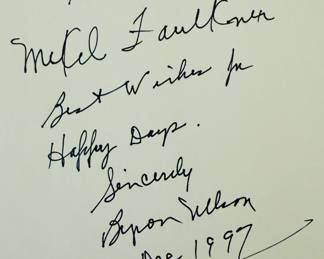 McKel Faulkner
Best Wishes for
Happy Days.
Sincerely
Byron Nelson
Dec 1997